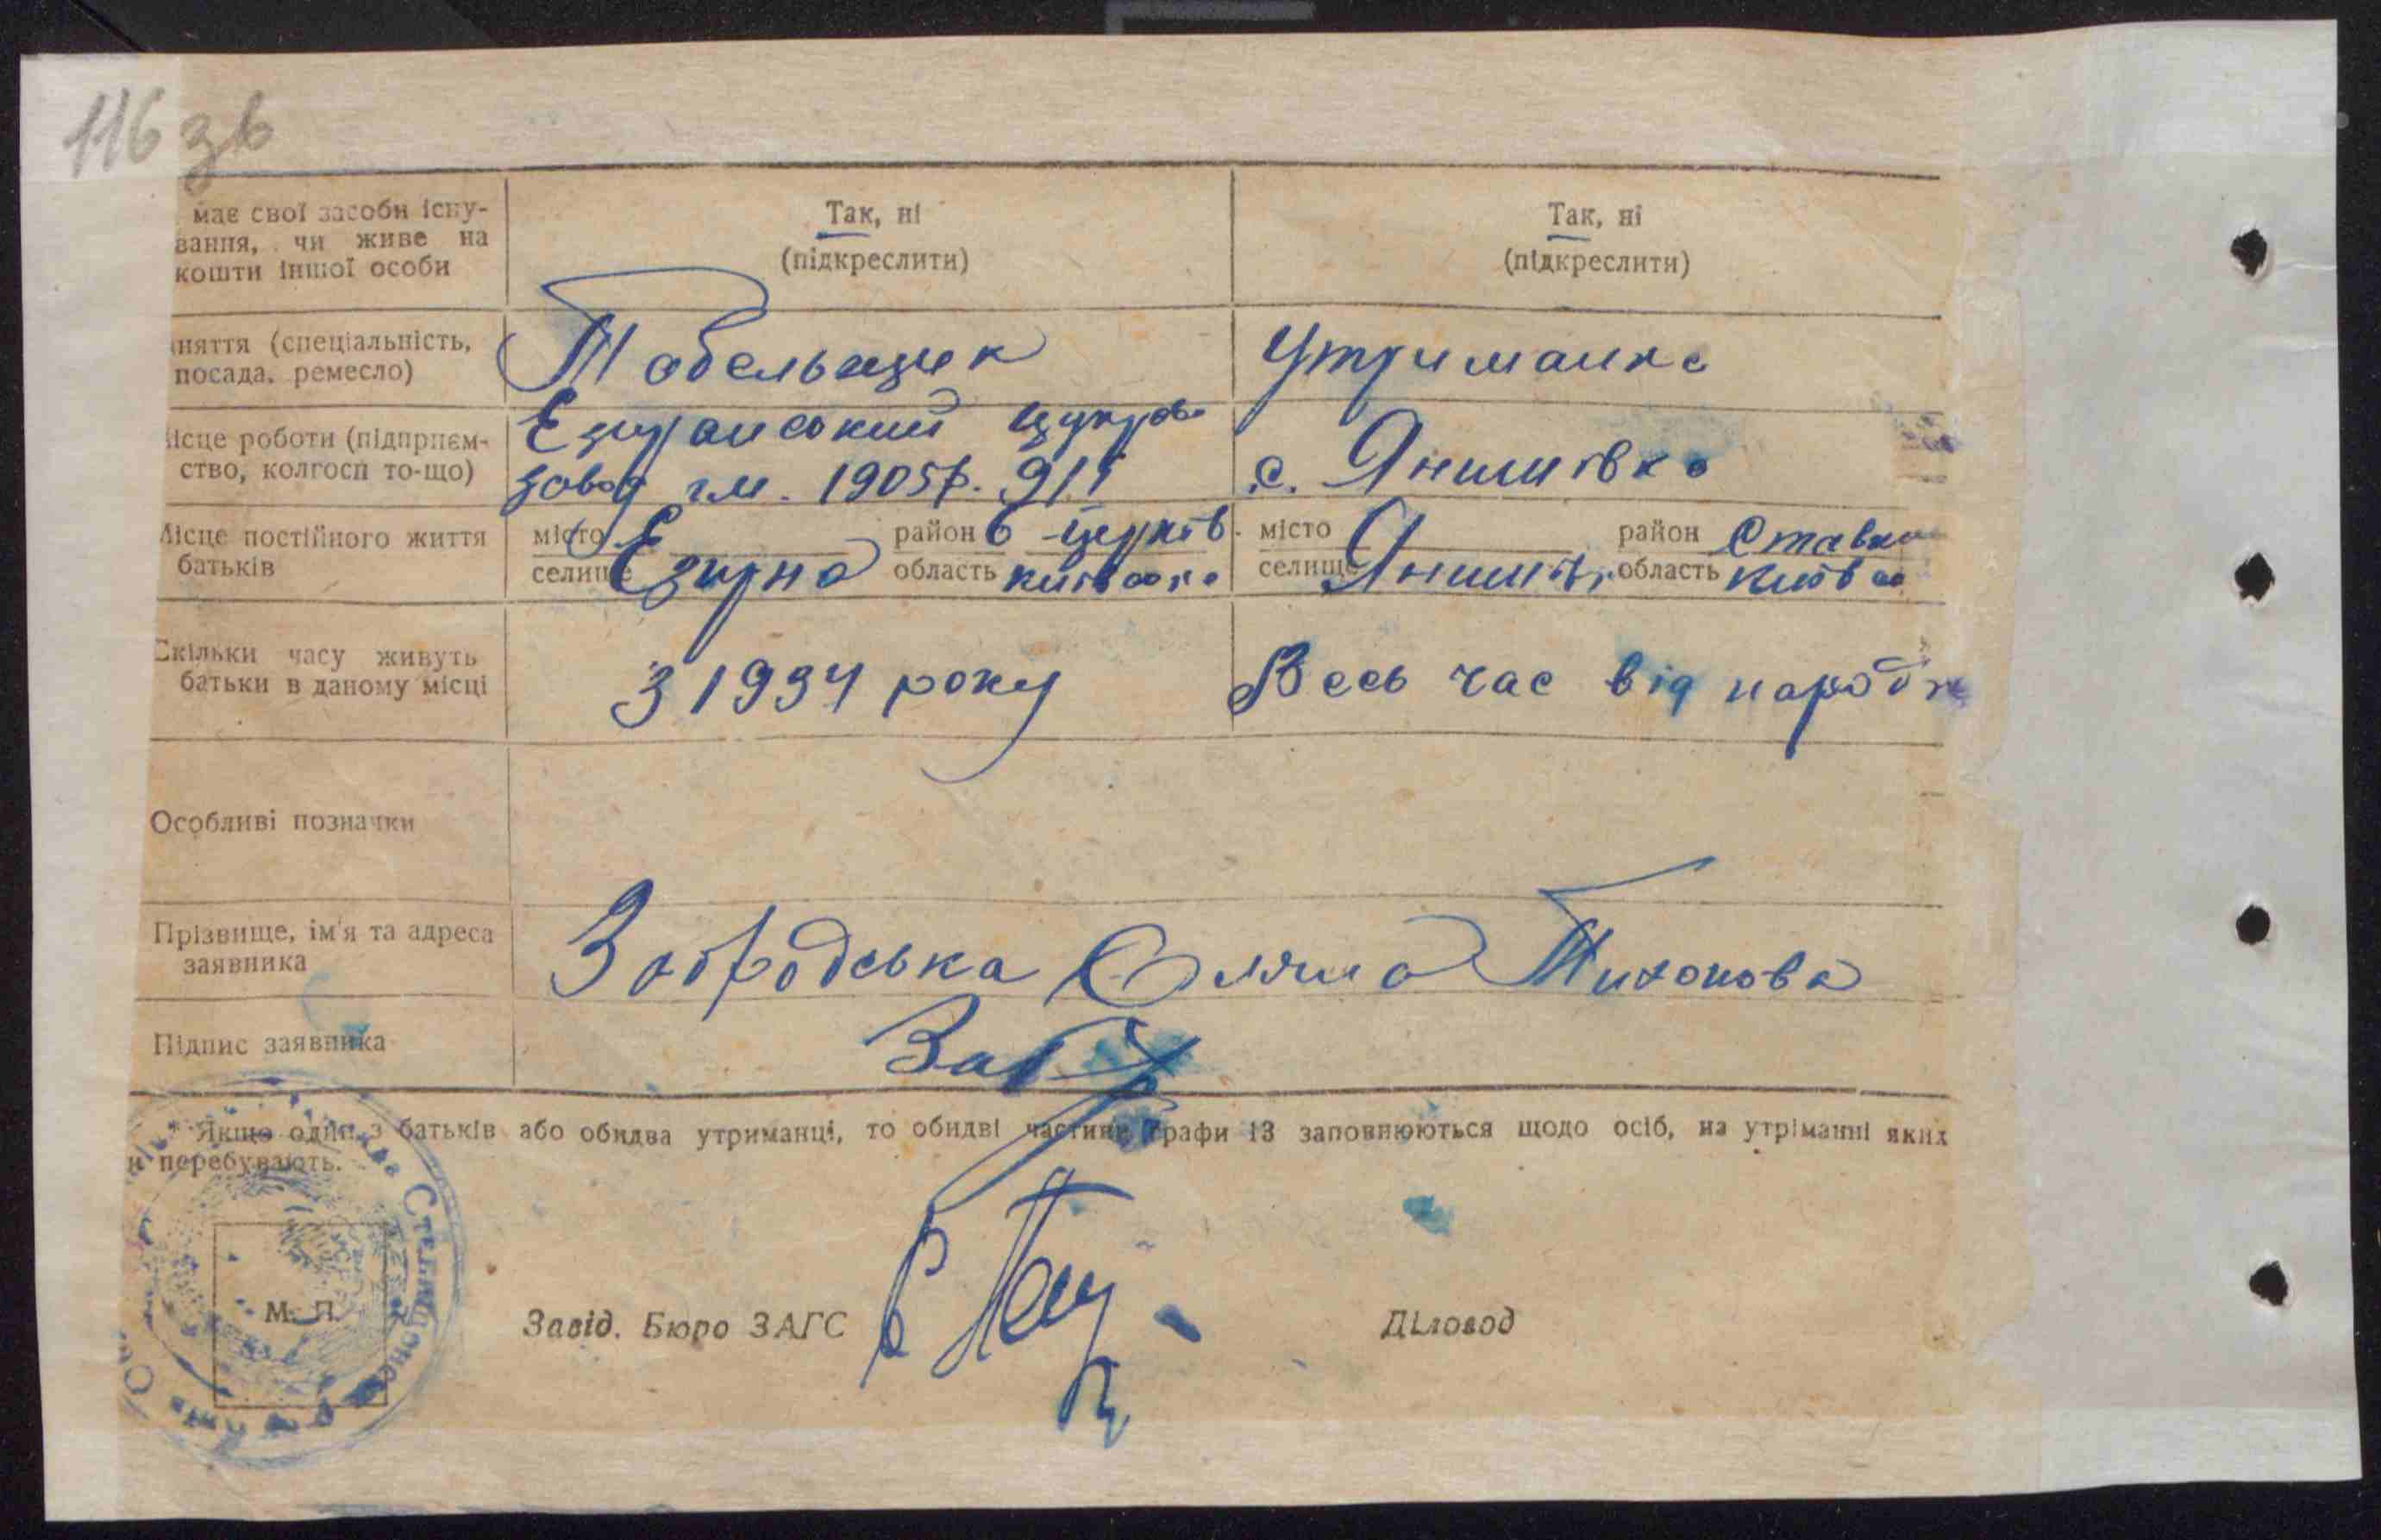 116 зв
має свої засоби існу-
вання, чи живе на
кошти іншої особи
Так, ні
(підкреслити)
Так, ні
(підкреслити)
няття (спеціальність,
посада, ремесло)
Табельщик
Утриманка
ісце роботи (підприєм-
ство, колгосп то-що)
Езирянський цукров
завод 1905р.
с. Янишівка
Місце постійного життя
батьків
місто
селище
Езирна
район Б-Церків.
область Київська
місто
селище
Янишів.
район Ставищ
область Київсь
Скільки часу живуть
батьки в даному місці
З 1934 року
Весь час від народж
Особливі позначки
Прізвище, ім'я та адреса
заявника
Забродська Тихонова
Підпис заявника
Забр
Якщо один з батьків або обидва утриманці, то обидві частини графи 13 заповнюються щодо осіб, на утріманні яких
и перебувають.
М. П.
Завід. Бюро ЗАГС
Діловод